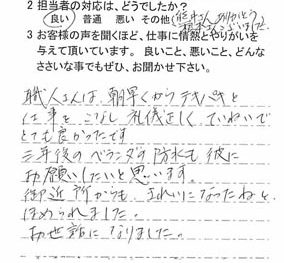 2 担当者の対応は、どうでしたか?
良い 普通 悪い その他(
3 お客様の声を聞くほど、仕事に情熱とやりがいを
与えて頂いています。良いこと、悪いこと、どんな
ささいな事でもぜひ、お聞かせ下さい。
職人さんは、朝早くからテキパキと
仕事をこなし礼儀正しく、ていねいで
とても良かったです
三年後のベランダ防水も彼に
お願いしたいと思います。
御近所からも、きれいになったねと、
ほめられました。
お世話になりました。